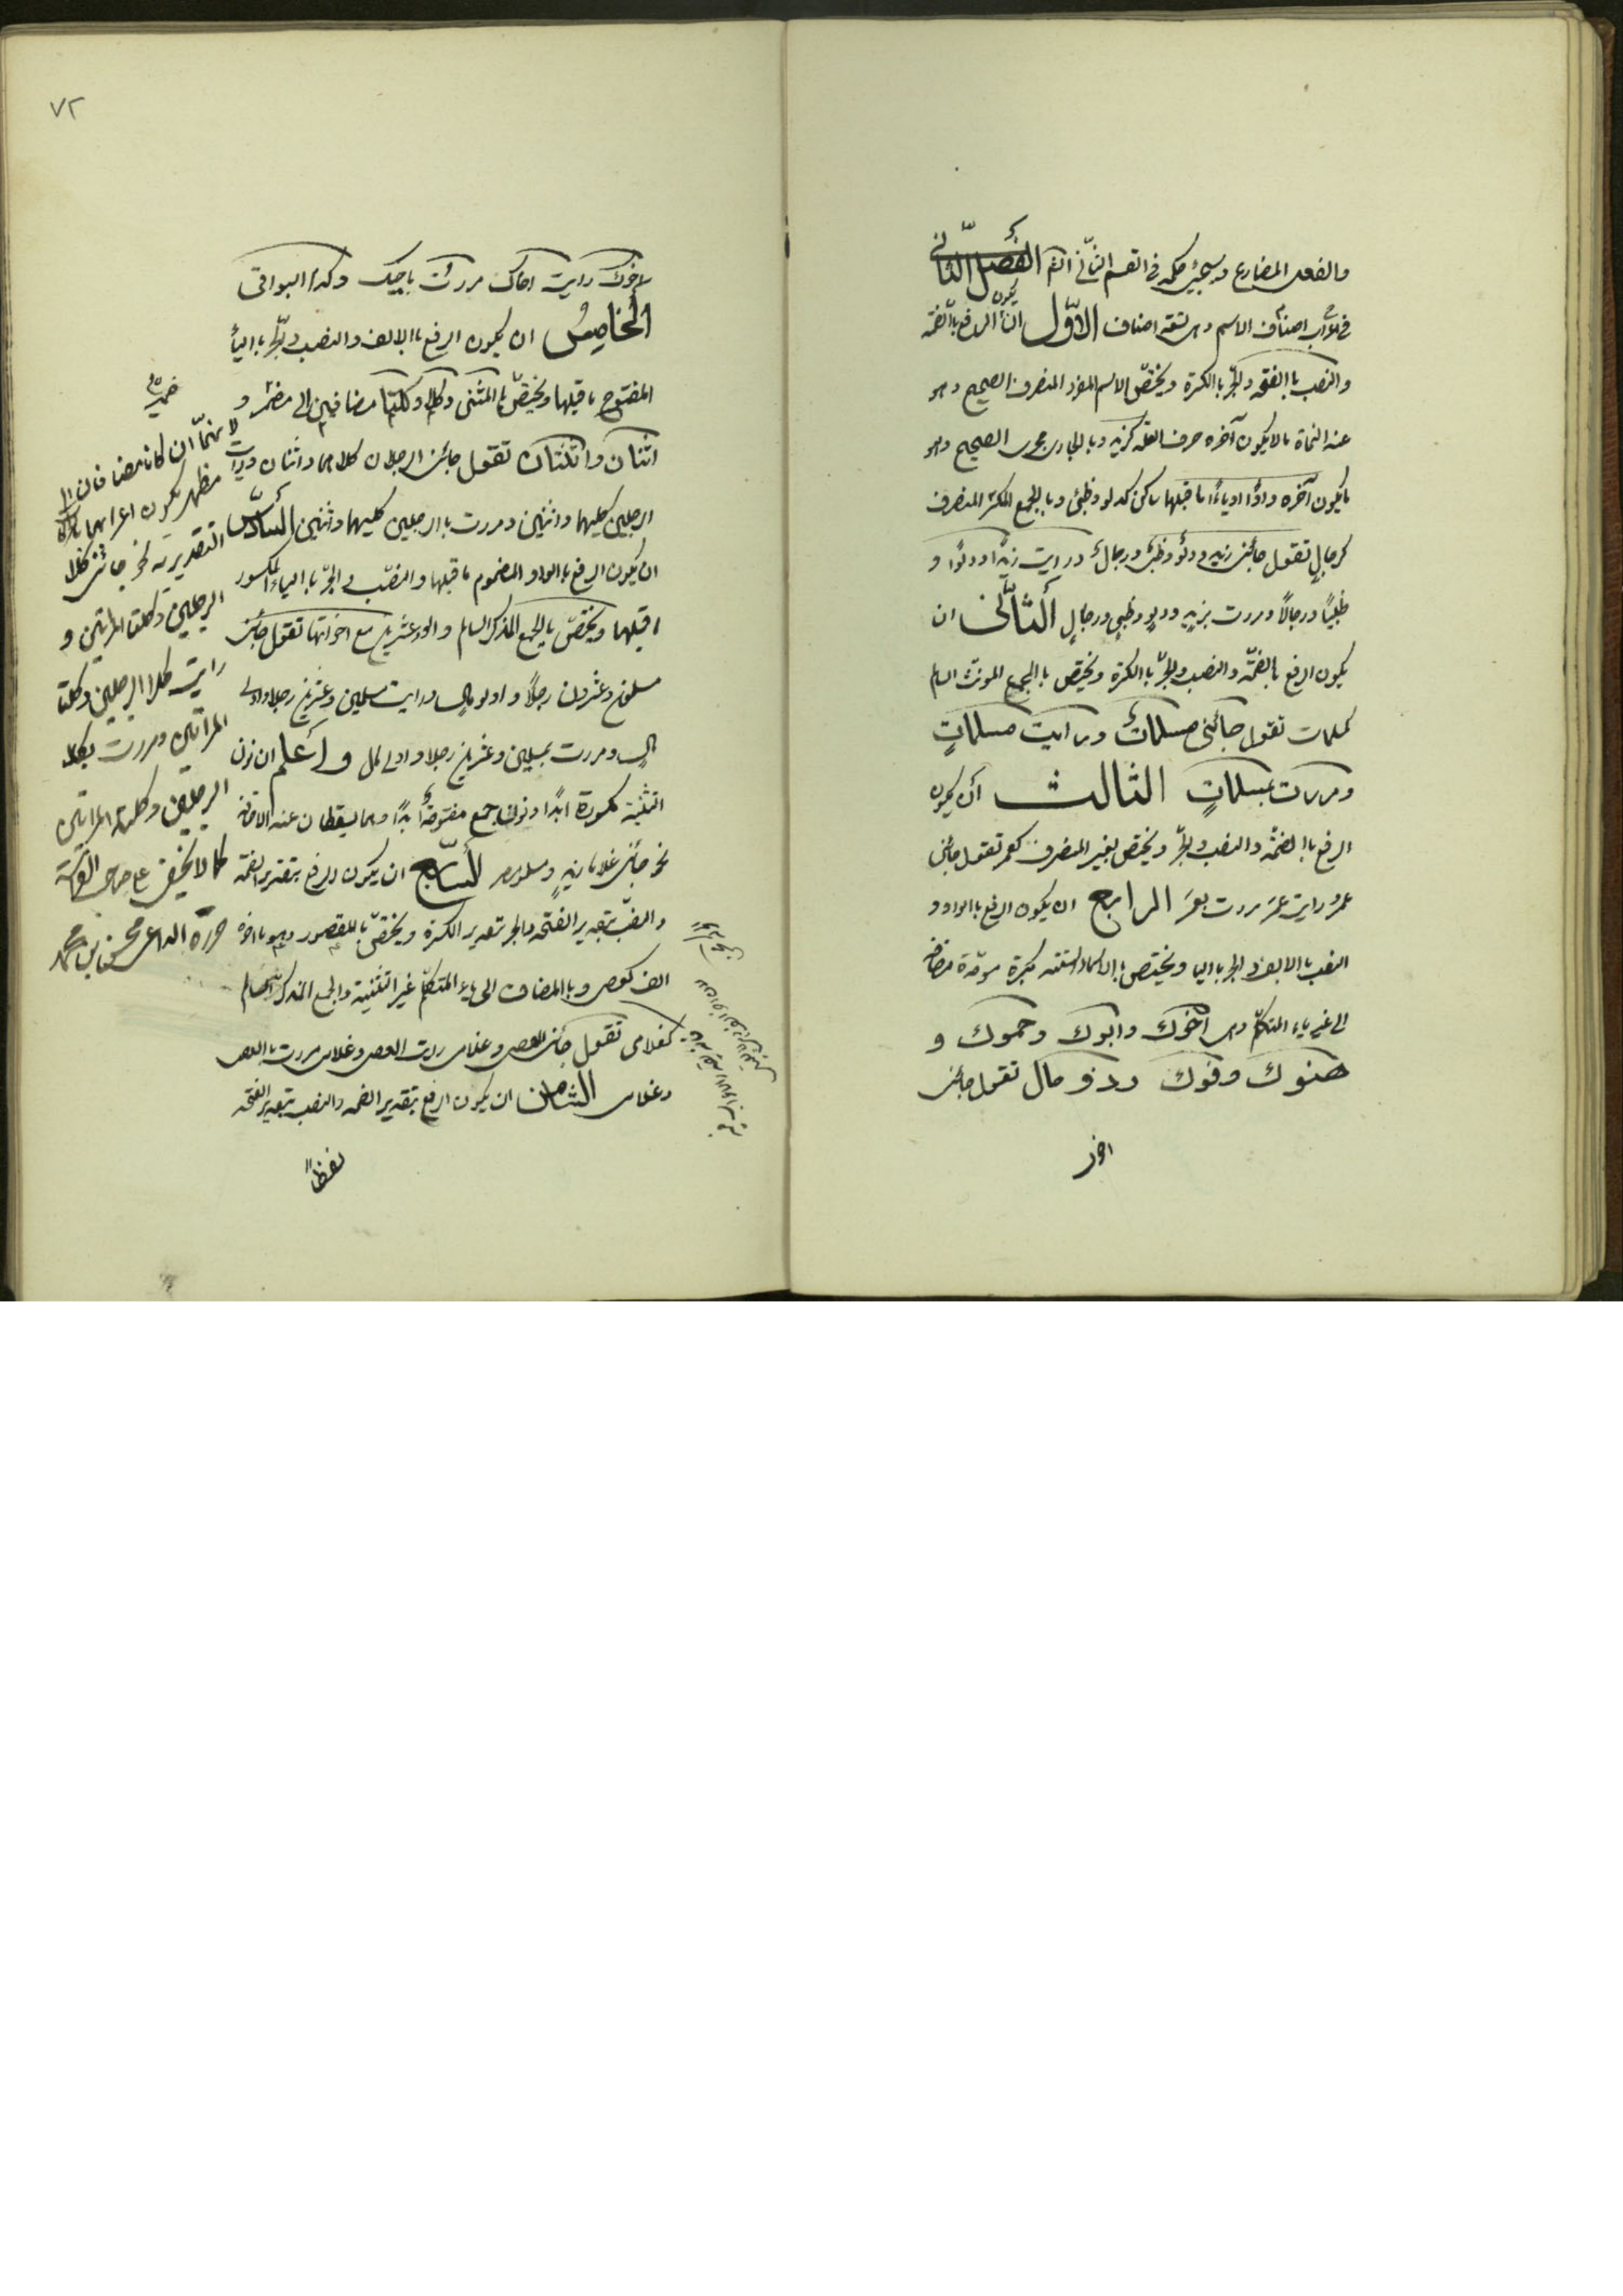 والفعل المضارع وسيجئ حكمه في القسم الثاني انش الفصل الثاني
في اعراب اصناف الاسم وهي تسعة اصناف الاوّل ان يكون الرفع باالضمّة
والنصب باالفتحه والجرّ باالكسرة ويختصّ الاسم المفرد المنصرف الصحيح وهو
عند النحاة مالا يكون آخره حرف العلّة كزيد وبا لجاري مجرى الصحيح وهو
ما يكون آخره واوًا او ياءً ما قبلها ساكن كدلو وظبي وبا لجمع المكسّر المنصرف
كرجالٍ تقول جائني زيد ودلوٌ وظبيٌ ورجالٌ ورايت زيدًا ودلوًا و
ظبيًا ورجالًا ومررت بزيدٍ ودلوٍ وظبيٍ ورجالٍ الثّاني ان
يكون الرفع بالضمّة والنصب والجرّ باالكسرة ويختص باالجمع المونث السالم
كمسلمات تقول جائني مسلماتٌ ورايت مسلماتٍ
ومررت بمسلماتٍ الثالث ان يكون
الرفع باالضمّة والنصب والجرّ ويختص بغير المنصرف كعمر تقول جائني
عمر ورايت عمرَ مررت بعمرَ الرابع ان يكون الرفع باالواو و
النصب باالالف والجر باليا ويختص باالاسماء الستّة مكبّرة موحّدة مضافة
الى غير ياء المتكلّم وهي اخوك وابوك وحموك و
هنوك وفوك وذو مال تقول جائني
اخو
٧٢
اخوك ورايت اخاك مررت باخيك وكذا البواقي
الخامِسُ ان يكون الرفع باالالف والنصب والجرّ باالياء
المفتوح ما قبلها ويختصّ باالمثنى وكلا وكلتا مضافين الى مضمر و
اثنان واثنتان تقول جائني الرجلان كلاهما واثنان ورايت
الرجلين كليهما واثنين ومررت باالرجلين كليهما واثنين السّادس
ان يكون الرفع باالواو المضموم ما قبلها والنصب والجرّ باالياء المكسور
ما قبلها ويختصّ باالجمع المذكر السالم والو وعشرين مع اخواتها تقول جائني
مسلمون وعشرون رجلًا واولو مالٍ ورايت مسلمين وعشرين رجلا واولى
مالٍ ومررت بمسلمين وعشرين رجلا واولى مال واعلم ان نون
التثنية مكسورة ابدًا ونون جمع مفتوحة ابدًا وهما يسقطان عند الاضافة
نحو جائني غلاما زيدٍ ومسلمو مصر السّابع ان يكون الرفع بتقدير الضمّة
والنصب بتقدير الفتحة والجر بتقدير الكسرة ويختصّ باالمقصور وهو ما آخره
الف كعصى وباالمضاف الى ياء المتكلّم غير التثنية والجمع المذكر السالم
كغلامي تقول جائني العصى وغلامي رايت العصى وغلامي مررت باالعصى
وغلامي الثامن ان يكون الرفع بتقدير الضمه والنصب بتقدير الفتحه
لفظًا
لانهمّا ان كانا مضافان الى
مظهر يكون اعرابهما
التقديريه نحو جائني كلا
الرجلين وكلتا المراتين و
رايت كلا الرجلين وكلتا
المراتين ومررت بكلا
الرجلين وكلتا المراتين
كما لا يخفى على صاحب
حرره